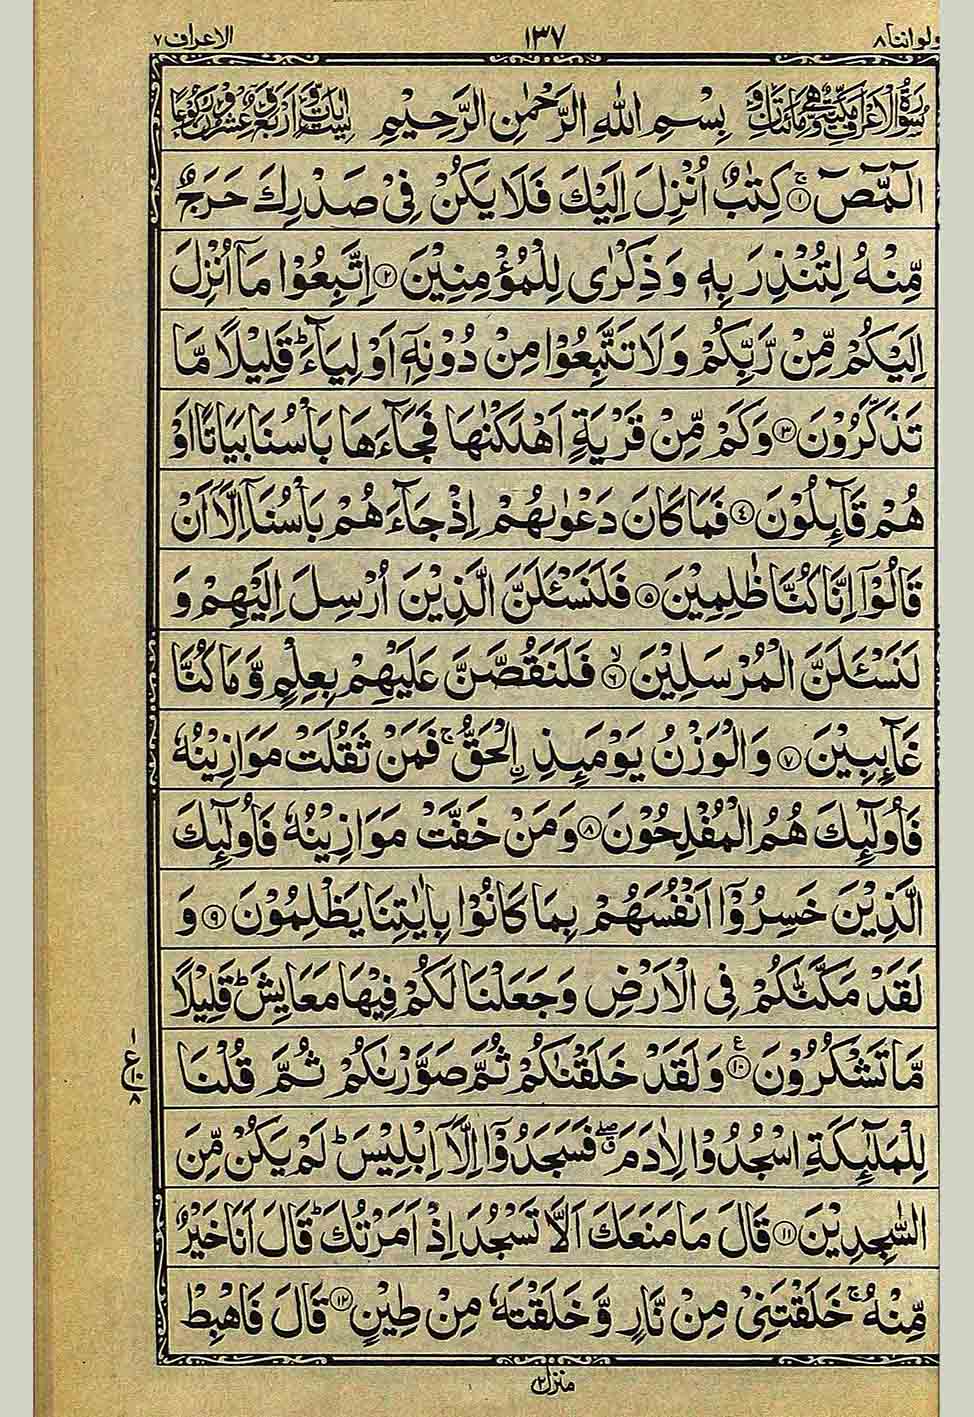 ولواننا ٨ ١٣٧ الاعراف ٧
سُوْرَةُ الْاَعْرَافِ مَكِّيَّةٌ وَّهِیَ مِائَتَانِ وَّ بِسْمِ اللهِ الرَّحْمٰنِ الرَّحِيْمِ سِتُّ اٰيَاتٍ وَّاَرْبَعٌ وَّعِشْرُوْنَ رُكُوْعًا
الٓمّٓصٓ ۚ﴿١﴾ كِتٰبٌ اُنْزِلَ اِلَيْكَ فَلَا يَكُنْ فِیْ صَدْرِكَ حَرَجٌ
مِّنْهُ لِتُنْذِرَ بِهٖ وَذِكْرٰی لِلْمُؤْمِنِيْنَ ﴿٢﴾ اِتَّبِعُوْا مَاۤ اُنْزِلَ
اِلَيْكُمْ مِّنْ رَّبِّكُمْ وَلَا تَتَّبِعُوْا مِنْ دُوْنِهٖۤ اَوْلِيَآءَ ؕ قَلِيْلًا مَّا
تَذَكَّرُوْنَ ﴿٣﴾ وَكَمْ مِّنْ قَرْيَةٍ اَهْلَكْنٰهَا فَجَآءَهَا بَاْسُنَا بَيَاتًا اَوْ
هُمْ قَآئِلُوْنَ ﴿٤﴾ فَمَا كَانَ دَعْوٰىهُمْ اِذْ جَآءَهُمْ بَاْسُنَاۤ اِلَّاۤ اَنْ
قَالُوْۤا اِنَّا كُنَّا ظٰلِمِيْنَ ﴿٥﴾ فَلَنَسْـَٔلَنَّ الَّذِيْنَ اُرْسِلَ اِلَيْهِمْ وَ
لَنَسْـَٔلَنَّ الْمُرْسَلِيْنَ ۙ﴿٦﴾ فَلَنَقُصَّنَّ عَلَيْهِمْ بِعِلْمٍ وَّمَا كُنَّا
غَآئِبِيْنَ ﴿٧﴾ وَالْوَزْنُ يَوْمَئِذِ ِۨالْحَقُّ ۚ فَمَنْ ثَقُلَتْ مَوَازِيْنُهٗ
فَاُولٰٓئِكَ هُمُ الْمُفْلِحُوْنَ ﴿٨﴾ وَمَنْ خَفَّتْ مَوَازِيْنُهٗ فَاُولٰٓئِكَ
الَّذِيْنَ خَسِرُوْۤا اَنْفُسَهُمْ بِمَا كَانُوْا بِاٰيٰتِنَا يَظْلِمُوْنَ ﴿٩﴾ وَ
لَقَدْ مَكَّنّٰكُمْ فِی الْاَرْضِ وَجَعَلْنَا لَكُمْ فِيْهَا مَعَايِشَ ؕ قَلِيْلًا
مَّا تَشْكُرُوْنَ ﴿١٠﴾ ع وَلَقَدْ خَلَقْنٰكُمْ ثُمَّ صَوَّرْنٰكُمْ ثُمَّ قُلْنَا
١ ع ١٠ ٨
لِلْمَلٰٓئِكَةِ اسْجُدُوْا لِاٰدَمَ ۖۗ فَسَجَدُوْۤا اِلَّاۤ اِبْلِيْسَ ؕ لَمْ يَكُنْ مِّنَ
السّٰجِدِيْنَ ﴿١١﴾ قَالَ مَا مَنَعَكَ اَلَّا تَسْجُدَ اِذْ اَمَرْتُكَ ؕ قَالَ اَنَا خَيْرٌ
مِّنْهُ ۚ خَلَقْتَنِیْ مِنْ نَّارٍ وَّخَلَقْتَهٗ مِنْ طِيْنٍ ﴿١٢﴾ قَالَ فَاهْبِطْ
منزل ٢